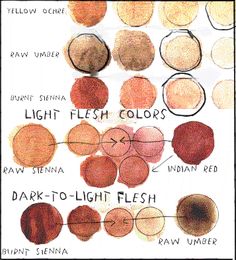 YELLOW OCHRE
RAW UMBER
BURNT SIENNA
LIGHT FLESH COLORS
RAW SIENNA
INDIAN RED
DARK-TO-LIGHT FLESH
BURNT SIENNA
RAW UMBER